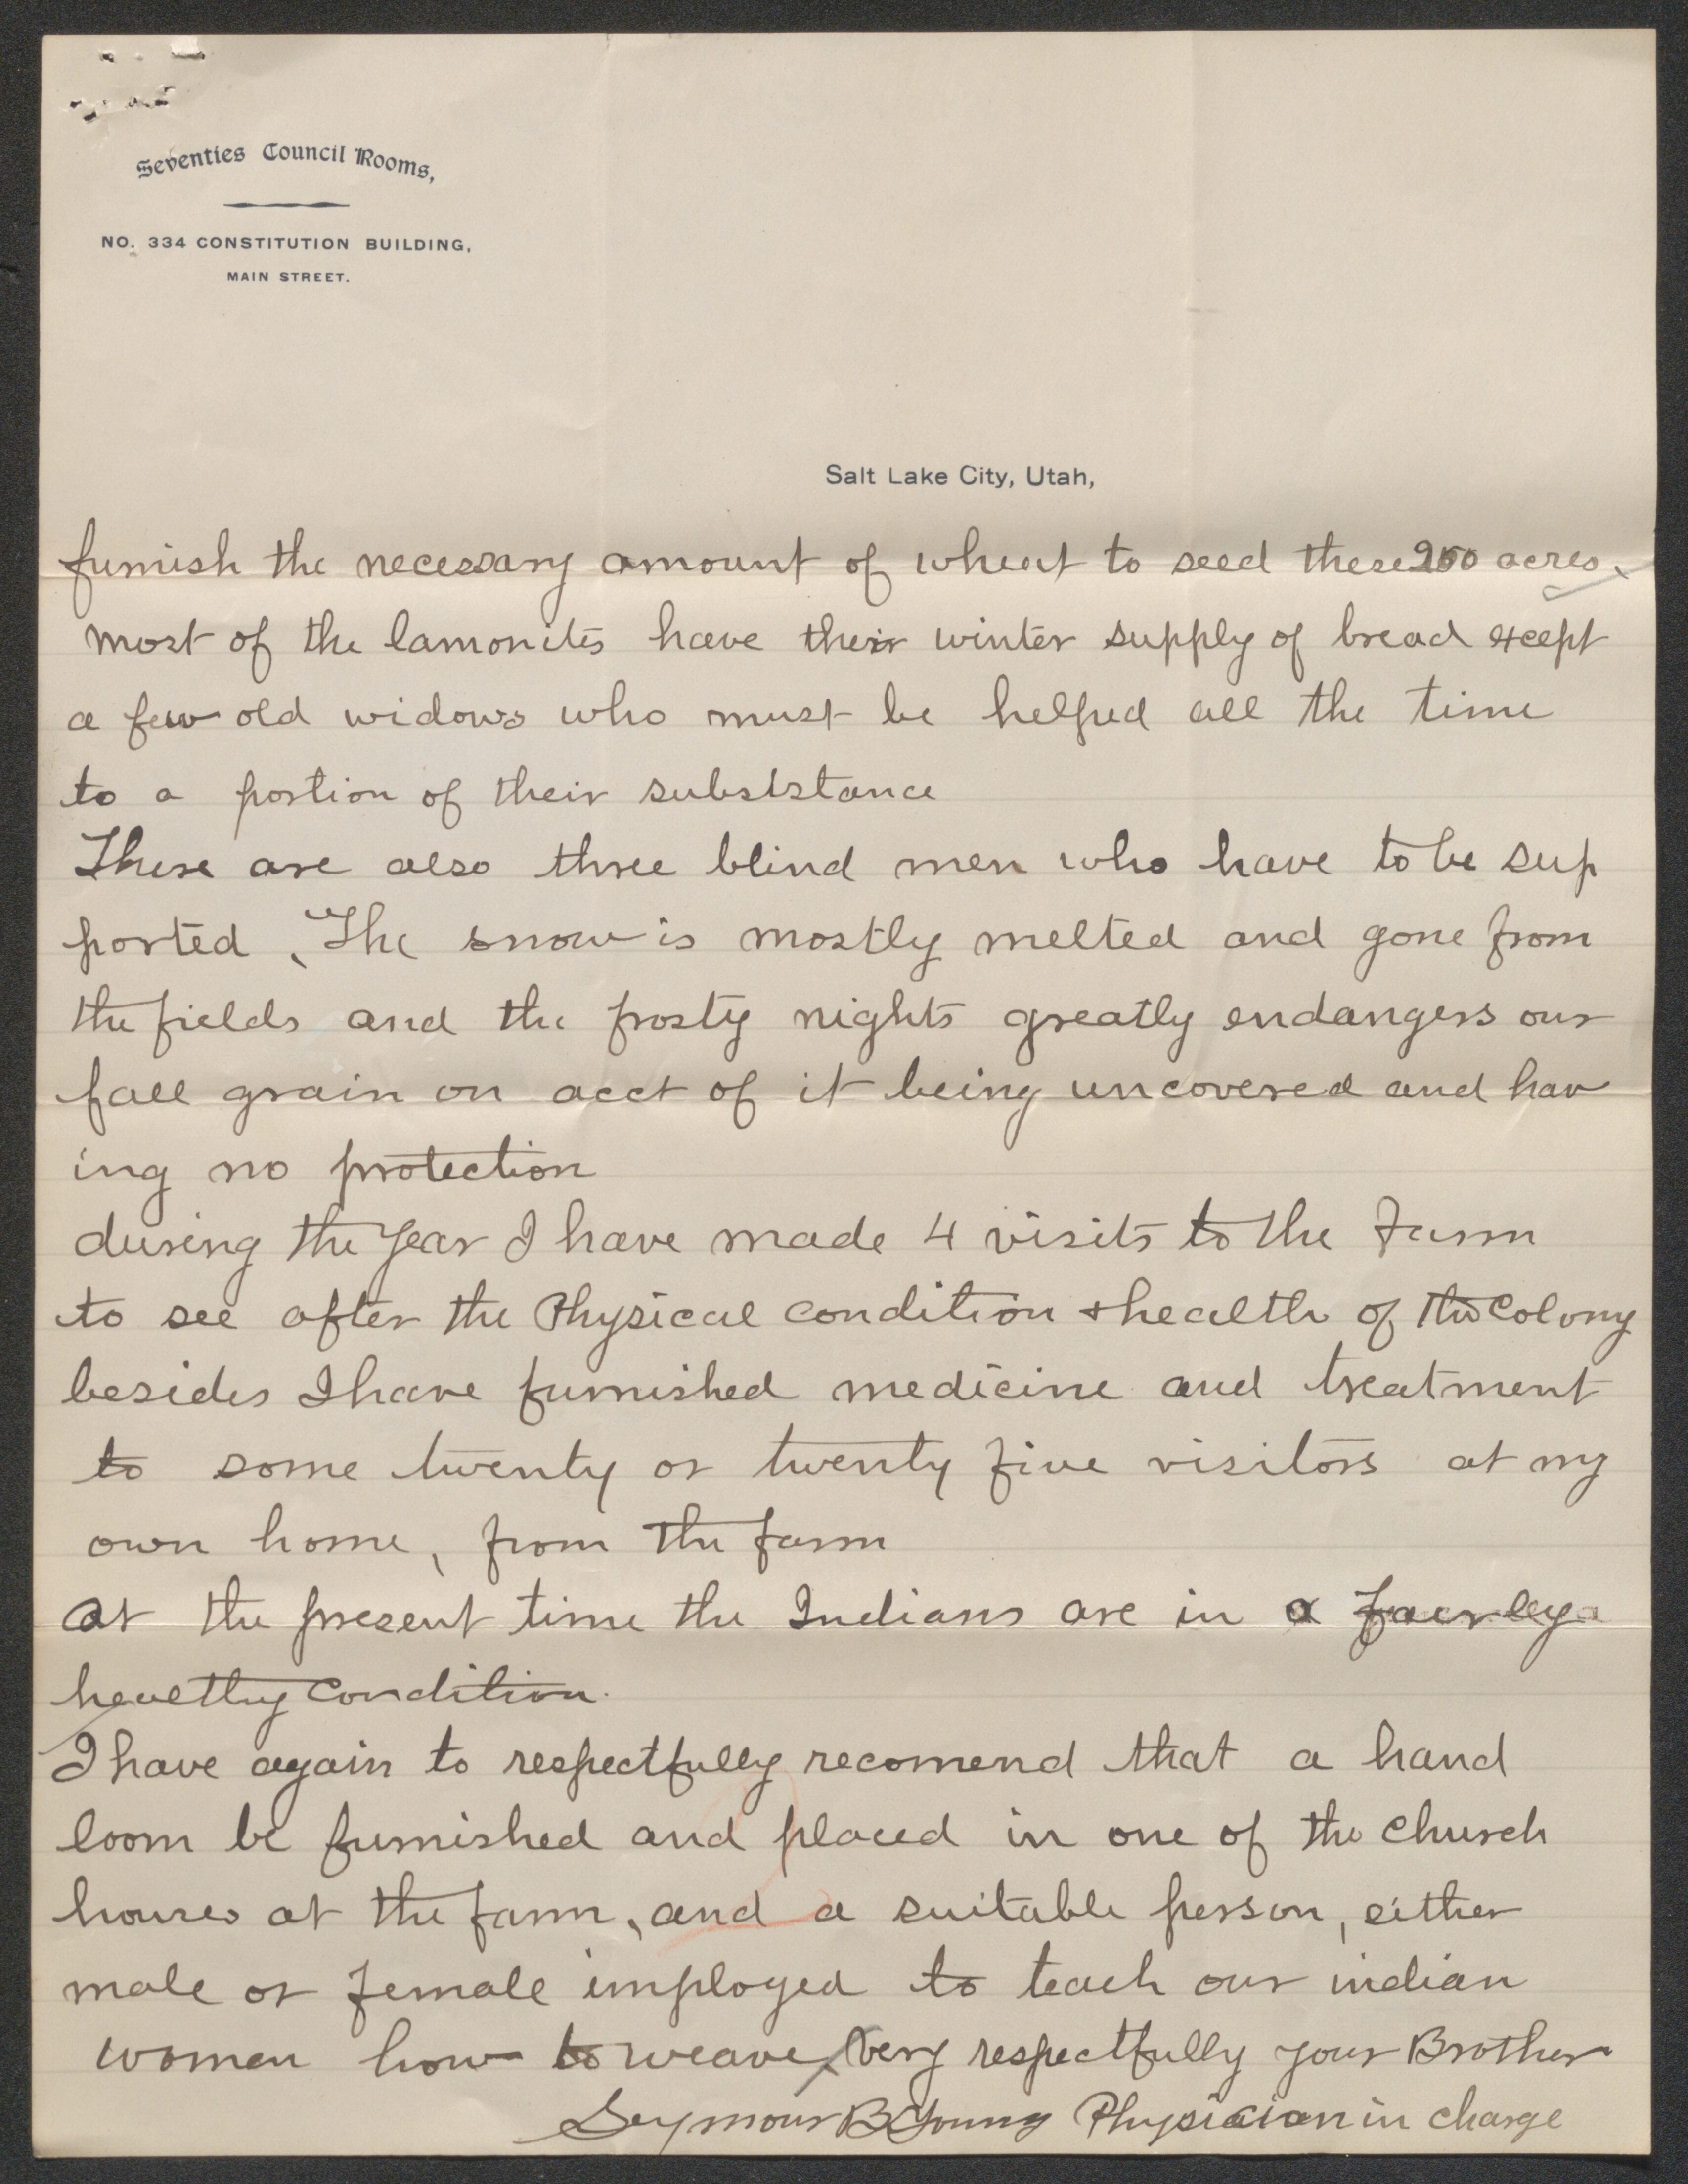 Seventies Council Rooms,
NO. 334 CONSTITUTION BUILDING,
MAIN STREET.
Salt Lake City, Utah,
furnish the necessary amount of wheat to seed these 250 acres.
most of the lamonites have their winter supply of bread except
a few old widows who must be helped all the time
to a portion of their subsistance
There are also three blind men who have to be sup
ported, The snow is mostly melted and gone from
the fields and the frosty nights greatly endangers our
fall grain on acct of it being uncovered and hav
ing no protection
during the year I have made 4 visits to the Farm
to see after the Physical condition & health of the Colony
besides I have furnished medicine and treatment
to some twenty or twenty five visitors at my
own home, from the farm
at the present time the Indians are in a fairley
healthy condition.
I have again to respectfully recomend that a hand
loom be furnished and placed in one of the church
houses at the farm, and a suitable person, either
male or female imployed to teach our indian
women how to weave, Very respectfully your Brother
Seymour B Young Physician in charge